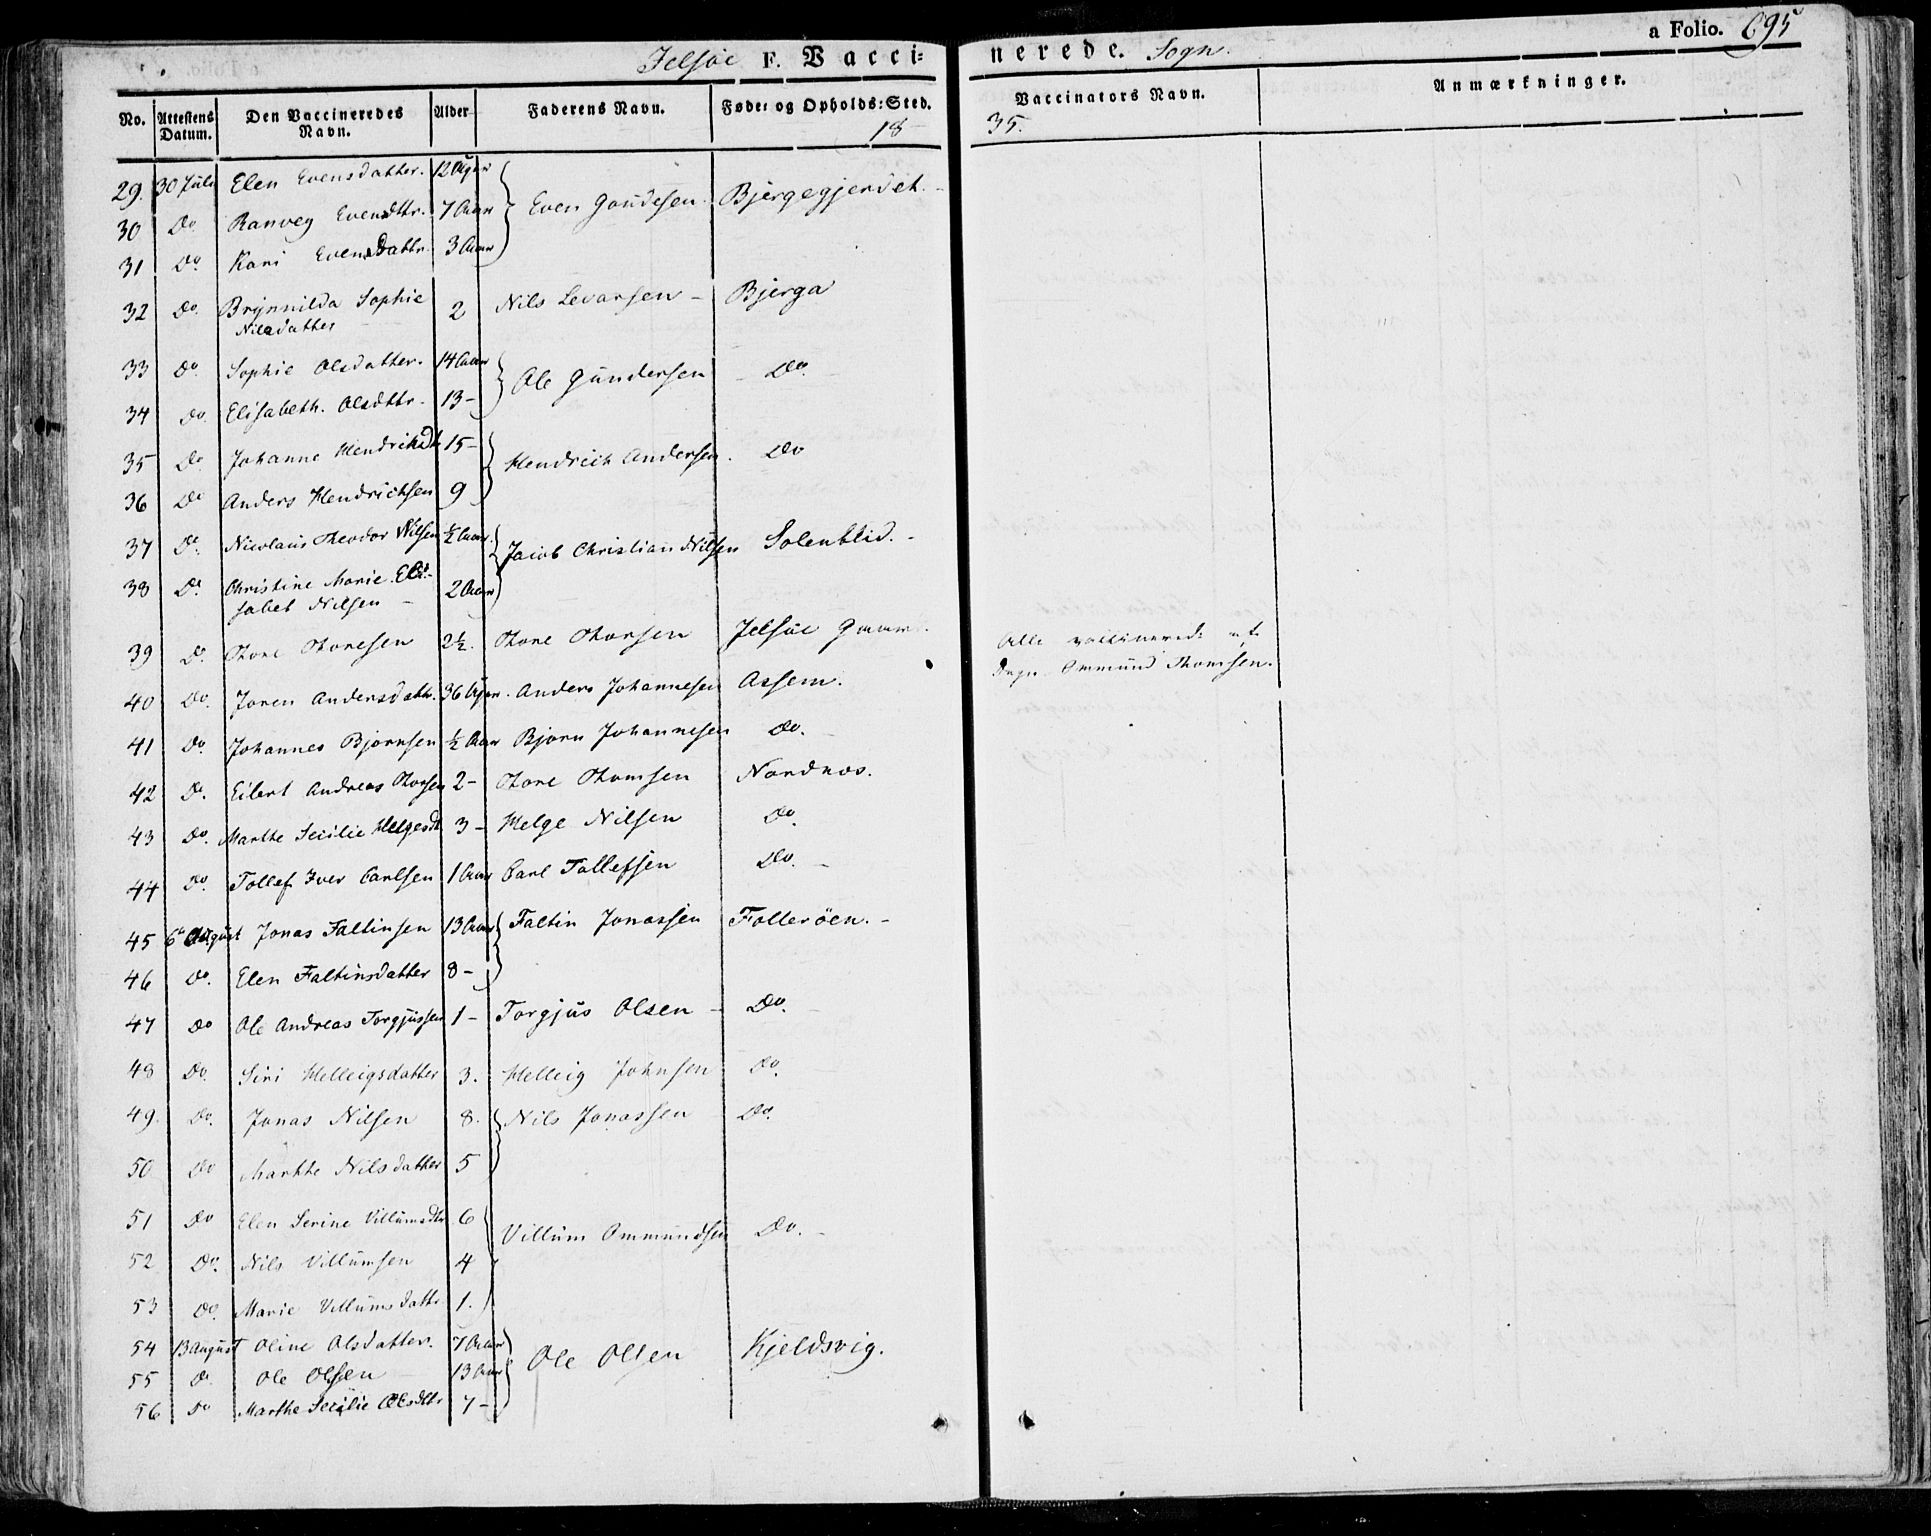 a Folio. 695
Jelsøe F. Vaccinerede. Sogn.
No. Attestens Datum. Den Vaccineredes Navn. Alder Faderens Navn. Føde- og Opholds-Sted. Vaccinators Navn. Anmærkninger.
18 35.
29. 30 Juli Elen Evensdatter. 12 Even Gaudesen. Bjergegjerdet.
30 Do Ranveg Evensdttr. 7 Aar
31 Do. Kari Evensdattr. 3 Aar
32 Do. Brynnilda Sophie Nilsdatter 2 Nils Levarsen - Bjerga
33 Do. Sophie Olsdatter. 14 Aar Ole Gundersen Do.
34 Do. Elisabeth. Olsdttr. 13 -
35 Do Johanne Hendriksdt 15 - Hendrich Andersen. Do
36 Do Anders Hendrichsen 9
37 Do. Nicolaus Theodor Nilsen ½ Aar. Jacob Christian Nilsen Solenblid. -
38 Do. Christine Marie Elisabet Nilsen - 2 Aar
39 Do. Thore Thoresen 2½. Thore Thorsen Jelsøe
Alle vaccinerede af
Ommund Thomsen.
40 Do. Joren Andersdatt. 36 Anders Johannesen Assem.
41 Do. Johannes Bjørnsen ½ Aar Bjørn Johannesen Do.
42 Do. Eilert Andreas Thorsen 2 - Thore Thomsen Nordnes.
43 Do. Marthe Secilie Helgesdt 3 - Helge Nilsen Do.
44 Do. Tollef Iver Carlsen 1 Aar Carl Tollefsen Do. -
45 6te August Jonas Faltinsen 13 Aar Faltin Jonassen Follerøen. -
46 Do. Elen Faltinsdatter 8 -
47 Do Ole Andreas Torgjussen 1 - Torgjus Olsen - Do.
48 Do. Siri Helleigsdatter 3. Helleig Johnsen Do.
49. Do. Jonas Nilsen 8. Nils Jonassen Do.
50 Do Marthe Nilsdatter 5
51 Do Elen Serine Villumsdtr 6 Villum Ommundsen Do. -
52 Do. Nils Villumsen 4
53 Do. Marie Villumsdattr 1.
54 13 August Oline Olsdatter. 7 Aar Ole Olsen Kjeldsvig.
55 Do. Ole Olsen 13 Aar
56 Do Marthe Secilie Olsdttr 7 -